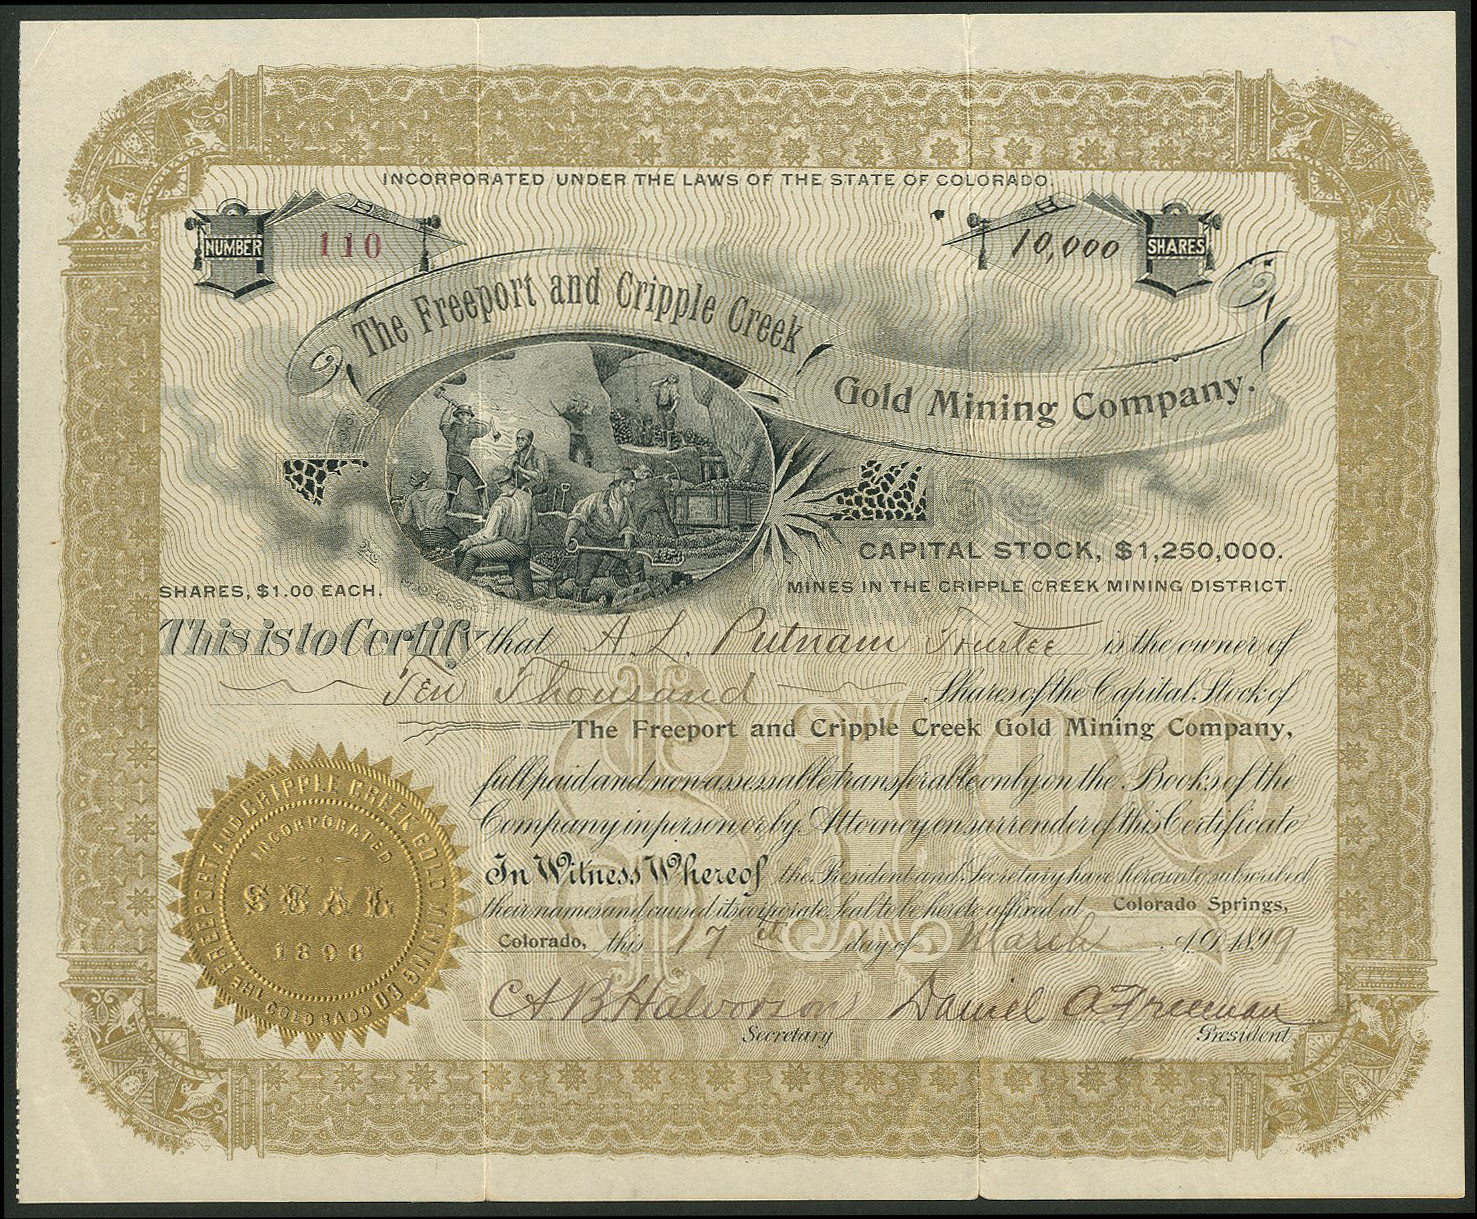 INCORPORATED UNDER THE LAWS OF THE STATE OF COLORADO.
NUMBER 110
10,000 SHARES
The Freeport and Cripple Creek
Gold Mining Company.
CAPITAL STOCK, $1,250,000.
SHARES, $1.00 EACH.
MINES IN THE CRIPPLE CREEK MINING DISTRICT.
This is to Certify that A. L. Putnam Trustee is the owner of
Ten Thousand Shares of the Capital Stock of
The Freeport and Cripple Creek Gold Mining Company,
full paid and non-assessable transferable only on the Books of the
Company in person or by Attorney on surrender of this Certificate
In Witness Whereof the President and Secretary have hereunto subscribed
their names and caused its corporate Seal to be hereto affixed at Colorado Springs,
Colorado, this 17th day of March A.D. 1899
C A B Halvorson Daniel A Freeman
Secretary President
$1.00
THE FREEPORT AND CRIPPLE CREEK GOLD MINING CO
INCORPORATED
SEAL
1896
COLORADO